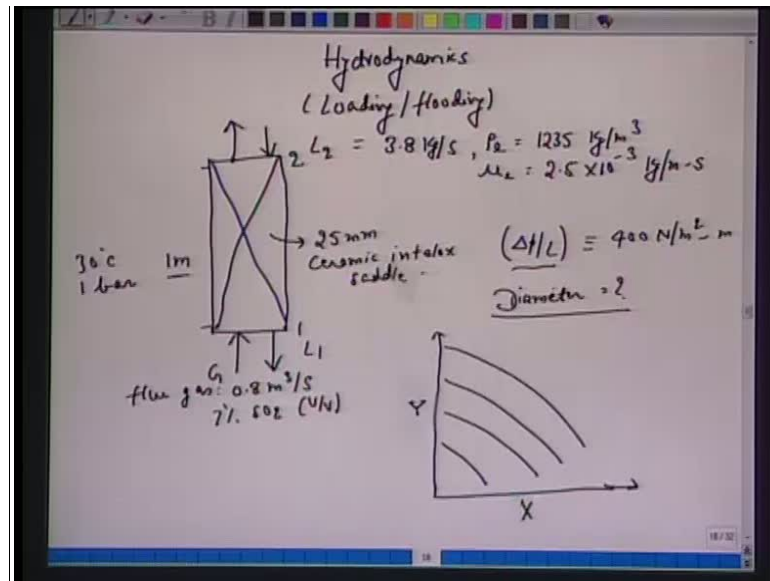 Hydrodynamics
(Loading/flooding)
2 L₂ = 3.8 kg/s, ρℓ = 1235 kg/m³
μℓ = 2.5 × 10⁻³ kg/m-s
30°C
1 bar
1m
25mm
Ceramic intalox
saddle
(Δp/L) = 400 N/m²-m
Diameter = ?
1
L₁
G₁
flue gas: 0.8 m³/s
7% SO₂ (V/V)
Y
X
18/32
18